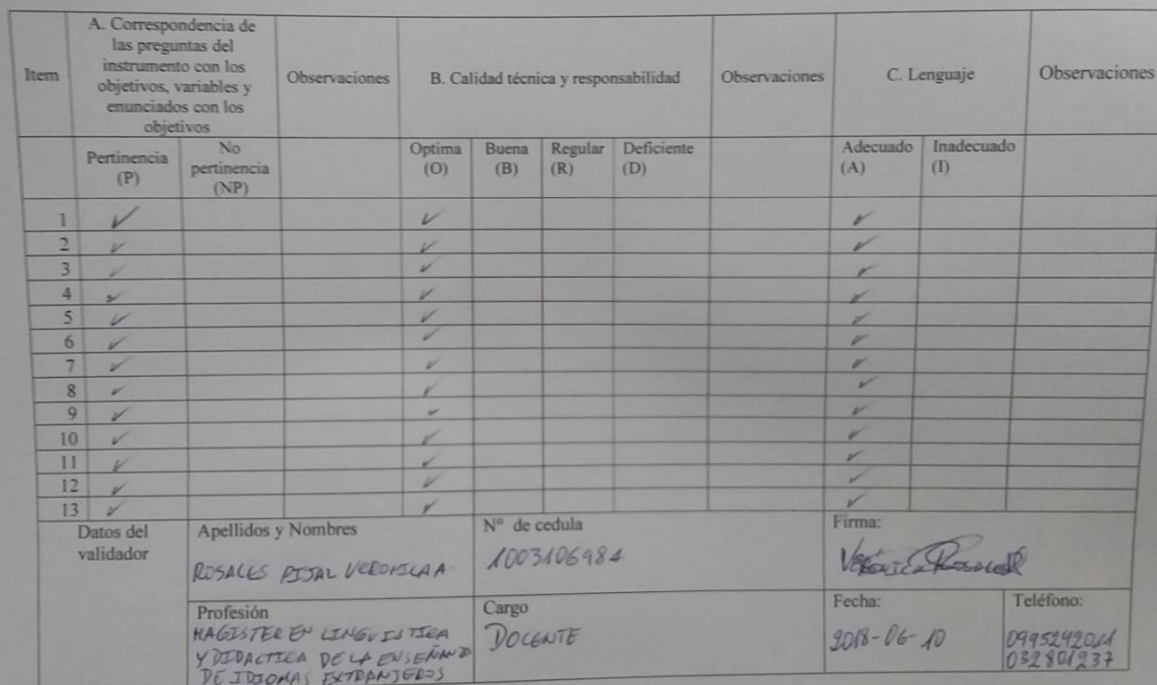 Item A. Correspondencia de las preguntas del instrumento con los objetivos, variables y enunciados con los objetivos Observaciones B. Calidad técnica y responsabilidad Observaciones C. Lenguaje Observaciones
Pertinencia (P) No pertinencia (NP) Optima (O) Buena (B) Regular (R) Deficiente (D) Adecuado (A) Inadecuado (I)
1 ✓ ✓ ✓
2 ✓ ✓ ✓
3 ✓ ✓ ✓
4 ✓ ✓ ✓
5 ✓ ✓ ✓
6 ✓ ✓ ✓
7 ✓ ✓ ✓
8 ✓ ✓ ✓
9 ✓ ✓ ✓
10 ✓ ✓ ✓
11 ✓ ✓ ✓
12 ✓ ✓ ✓
13 ✓ ✓ ✓
Datos del validador
Apellidos y Nombres
ROSALES PIJAL VERONICA A.
N° de cedula
1003106984
Firma:
Verónica Rosales
Profesión
MAGISTER EN LINGUISTICA
Y DIDACTICA DE LA ENSEÑANZA
DE IDIOMAS EXTRANJEROS
Cargo
DOCENTE
Fecha:
2018-06-10
Teléfono:
032801237